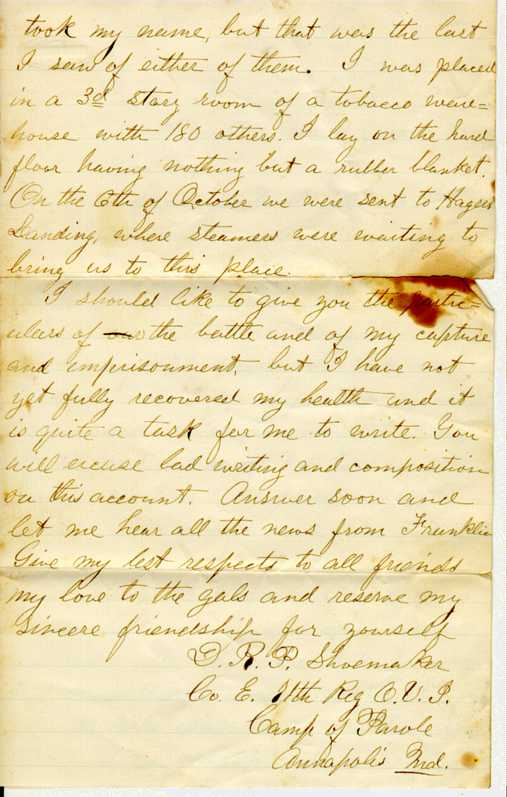 took my name, but that was the last
I saw of either of them. I was placed
in a 3d story room of a tobacco ware=
house with 180 others. I lay on the hard
floor having nothing but a rubber blanket.
On the 6th of October we were sent to
Landing, where steamers were waiting to
bring us to this place.
I should like to give you the partic-
ulars of the battle and of my capture
and imprisonment, but I have not
yet fully recovered my health and it
is quite a task for me to write. You
will excuse bad writing and composition
on this account. Answer soon and
let me hear all the news from Franklin
Give my best respects to all friends
my love to the gals and reserve my
sincere friendship for yourself
D. R. P. Shoemaker
Co. E. 71th Reg O.V.I.
Camp of Parole
Annapolis Md.